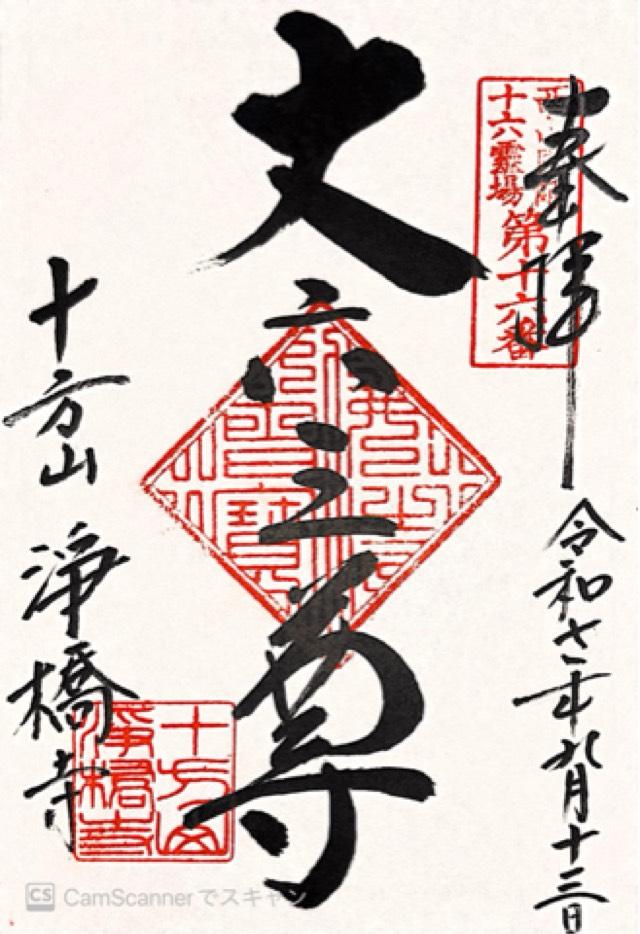 奉拝
令和七年九月十三日
十六霊場
第十六番
丈六三尊
十方山 淨橋寺
十方山
淨橋寺
CS CamScanner でスキャン